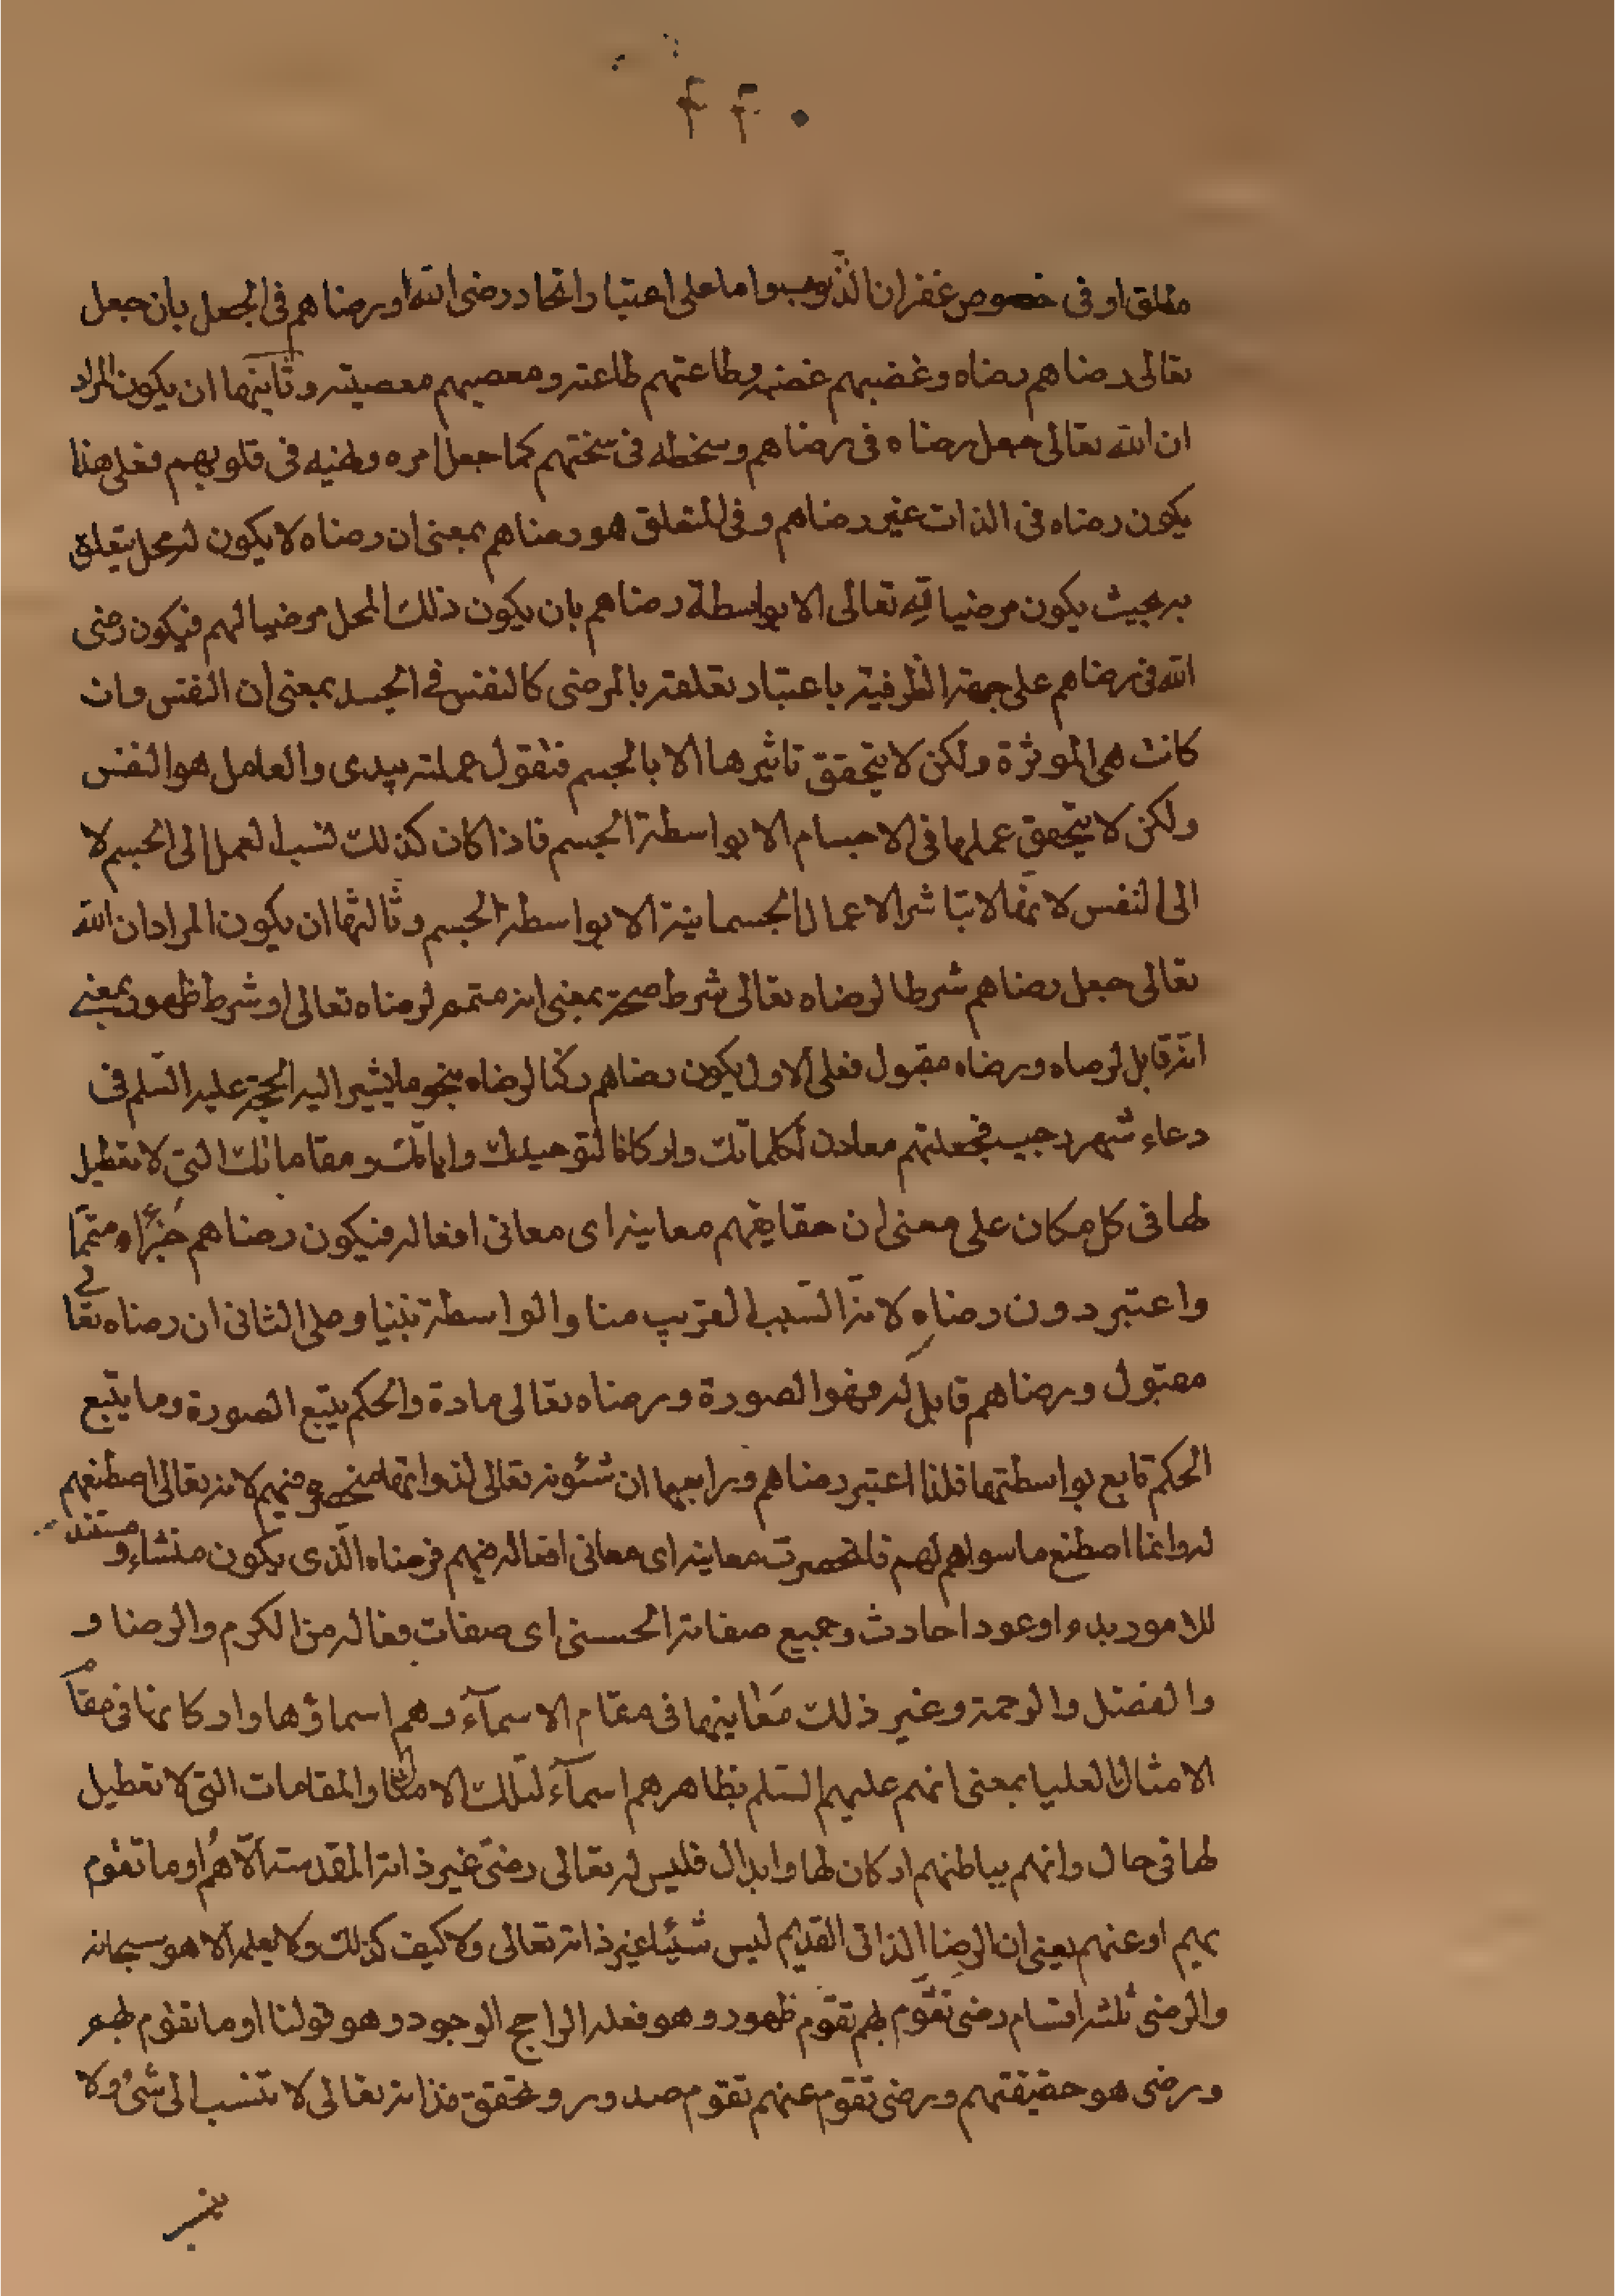 ۴۴۰
مطلق او فى خصوص غفران الذنوب واما على اعتبار اتحاد رضى الله ورضاهم فى الجعل بان جعل
تعالى رضاهم رضاه وغضبهم غضبه وطاعتهم طاعته ومعصيهم معصيته وثانيها ان يكون المراد
ان الله تعالى جعل رضاه فى رضاهم وسخطه فى سختهم كما جعل امره ونهيه فى قلوبهم فعلى هذا
يكون رضاه فى الذات غير رضاهم وفى المتعلق هو رضاهم بمعنى ان رضاه لا يكون له محل يتعلق
به بحيث يكون مرضيا لله تعالى الا بواسطة رضاهم بان يكون ذلك المحل مرضيا لهم فيكون رضى
الله فى رضاهم على جهة الظرفية باعتبار تعلقه بالمرضى كالنفس فى الجسد بمعنى ان النفس وان
كانت هى الموثرة ولكن لا يتحقق تاثيرها الا بالجسم فتقول عملته بيدى والعامل هو النفس
ولكن لا يتحقق عملها فى الاجسام الا بواسطة الجسم فاذا كان كذلك نسب العمل الى الجسم لا
الى النفس لانها لا تباشر الاعمال الجسمانية الا بواسطة الجسم وثالثها ان يكون المراد ان الله
تعالى جعل رضاهم شرطا لرضاه تعالى شرط صحة بمعنى انه متمم لرضاه تعالى او شرط ظهور بمعنى
انه قابل لرضاه ورضاه مقبول فعلى الاول يكون رضاهم ركنا لرضاه بنحو ما يشير اليه الحجة عليه السلم فى
دعاء شهر رجب فجعلتهم معادن لكلماتك واركانا لتوحيدك واياتك ومقاماتك التى لا تعطيل
لها فى كل مكان على معنى ان حقايقهم معانيه اى معانى افعاله فيكون رضاهم جزءا ومتمما
واعتبر دون رضاه لانه السبب القريب منا والواسطة بيننا وعلى الثانى ان رضاه تعالى
مقبول ورضاهم قابل له فهو الصورة ورضاه تعالى مادة والحكم يتبع الصورة وما يتبع
الحكم تابع بواسطتها فلذا اعتبر رضاهم ورابعها ان شئونه تعالى لذواتها منحصرة فيهم لانه تعالى اصطنعهم
له وانما اصطنع ما سواهم لهم فانحصرت معانيه اى معانى افعاله فيهم فرضاه الذى يكون منشاء ومستند
للامور بدء او عودا حادث وجميع صفاته الحسنى اى صفات فعاله من الكرم والرضا و
والفضل والرحمة وغير ذلك معانيها فى مقام الاسمآء وهم اسماؤها واركانها فى مقام
الامثال العليا بمعنى انهم عليهم السلم بظاهرهم اسمآء لتلك الامثال والمقامات التى لا تعطيل
لها فى حال وانهم بباطنهم اركان لها وابدال فليس له تعالى رضى غير ذاته المقدسة الا هم او ما تقوم
بهم او عنهم يعنى ان الرضا الذاتى القديم ليس شيئا غير ذاته تعالى ولا كيف لذلك ولا يعلمه الا هو سبحانه
والرضى ثلثة اقسام رضى تقوم بهم تقوم ظهور وهو فعله الراجح الوجود وهو قولنا او ما تقوم بهم
ورضى هو حقيقتهم ورضى تقوم عنهم تقوم صدور وتحقق فذاته تعالى لا تنسب الى شئ ولا